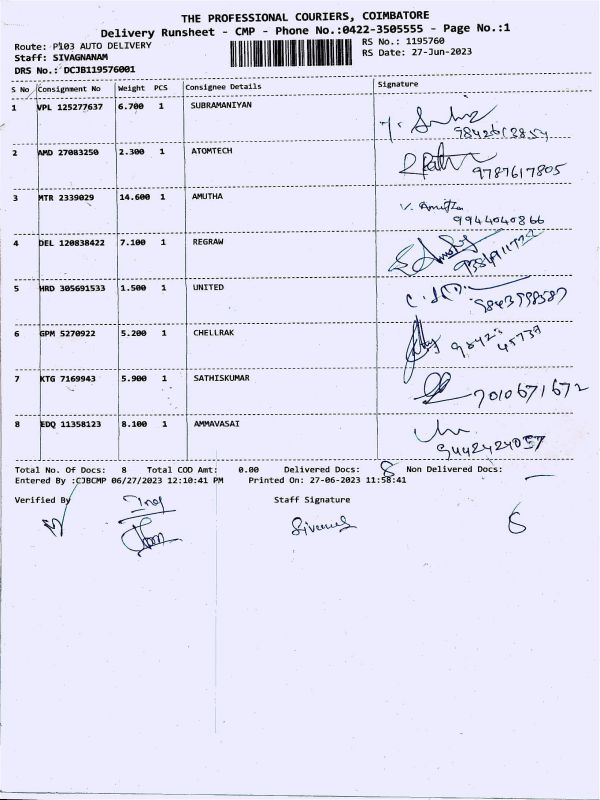 THE PROFESSIONAL COURIERS, COIMBATORE
Delivery Runsheet - CMP - Phone No.:0422-3505555 - Page No.:1
Route: P103 AUTO DELIVERY
RS No.: 1195760
Staff: SIVAGNANAM
RS Date: 27-Jun-2023
DRS No.: DCJB119576001
S No Consignment No Weight PCS Consignee Details Signature
1 VPL 125277637 6.700 1 SUBRAMANIYAN
9842613854
2 AMD 27083250 2.300 1 ATOMTECH
9787617805
3 MTR 2339029 14.600 1 AMUTHA
V. Amutha
9944040866
4 DEL 120838422 7.100 1 REGRAW
5 HRD 305691533 1.500 1 UNITED
9843998587
6 GPM 5270922 5.200 1 CHELLRAK
98423
45739
7 KTG 7169943 5.900 1 SATHISKUMAR
7010671672
8 EDQ 11358123 8.100 1 AMMAVASAI
9442424057
Total No. Of Docs: 8 Total COD Amt: 0.00 Delivered Docs: 8 Non Delivered Docs: -
Entered By :CJBCMP 06/27/2023 12:10:41 PM Printed On: 27-06-2023 11:58:41
Verified By Staff Signature
8